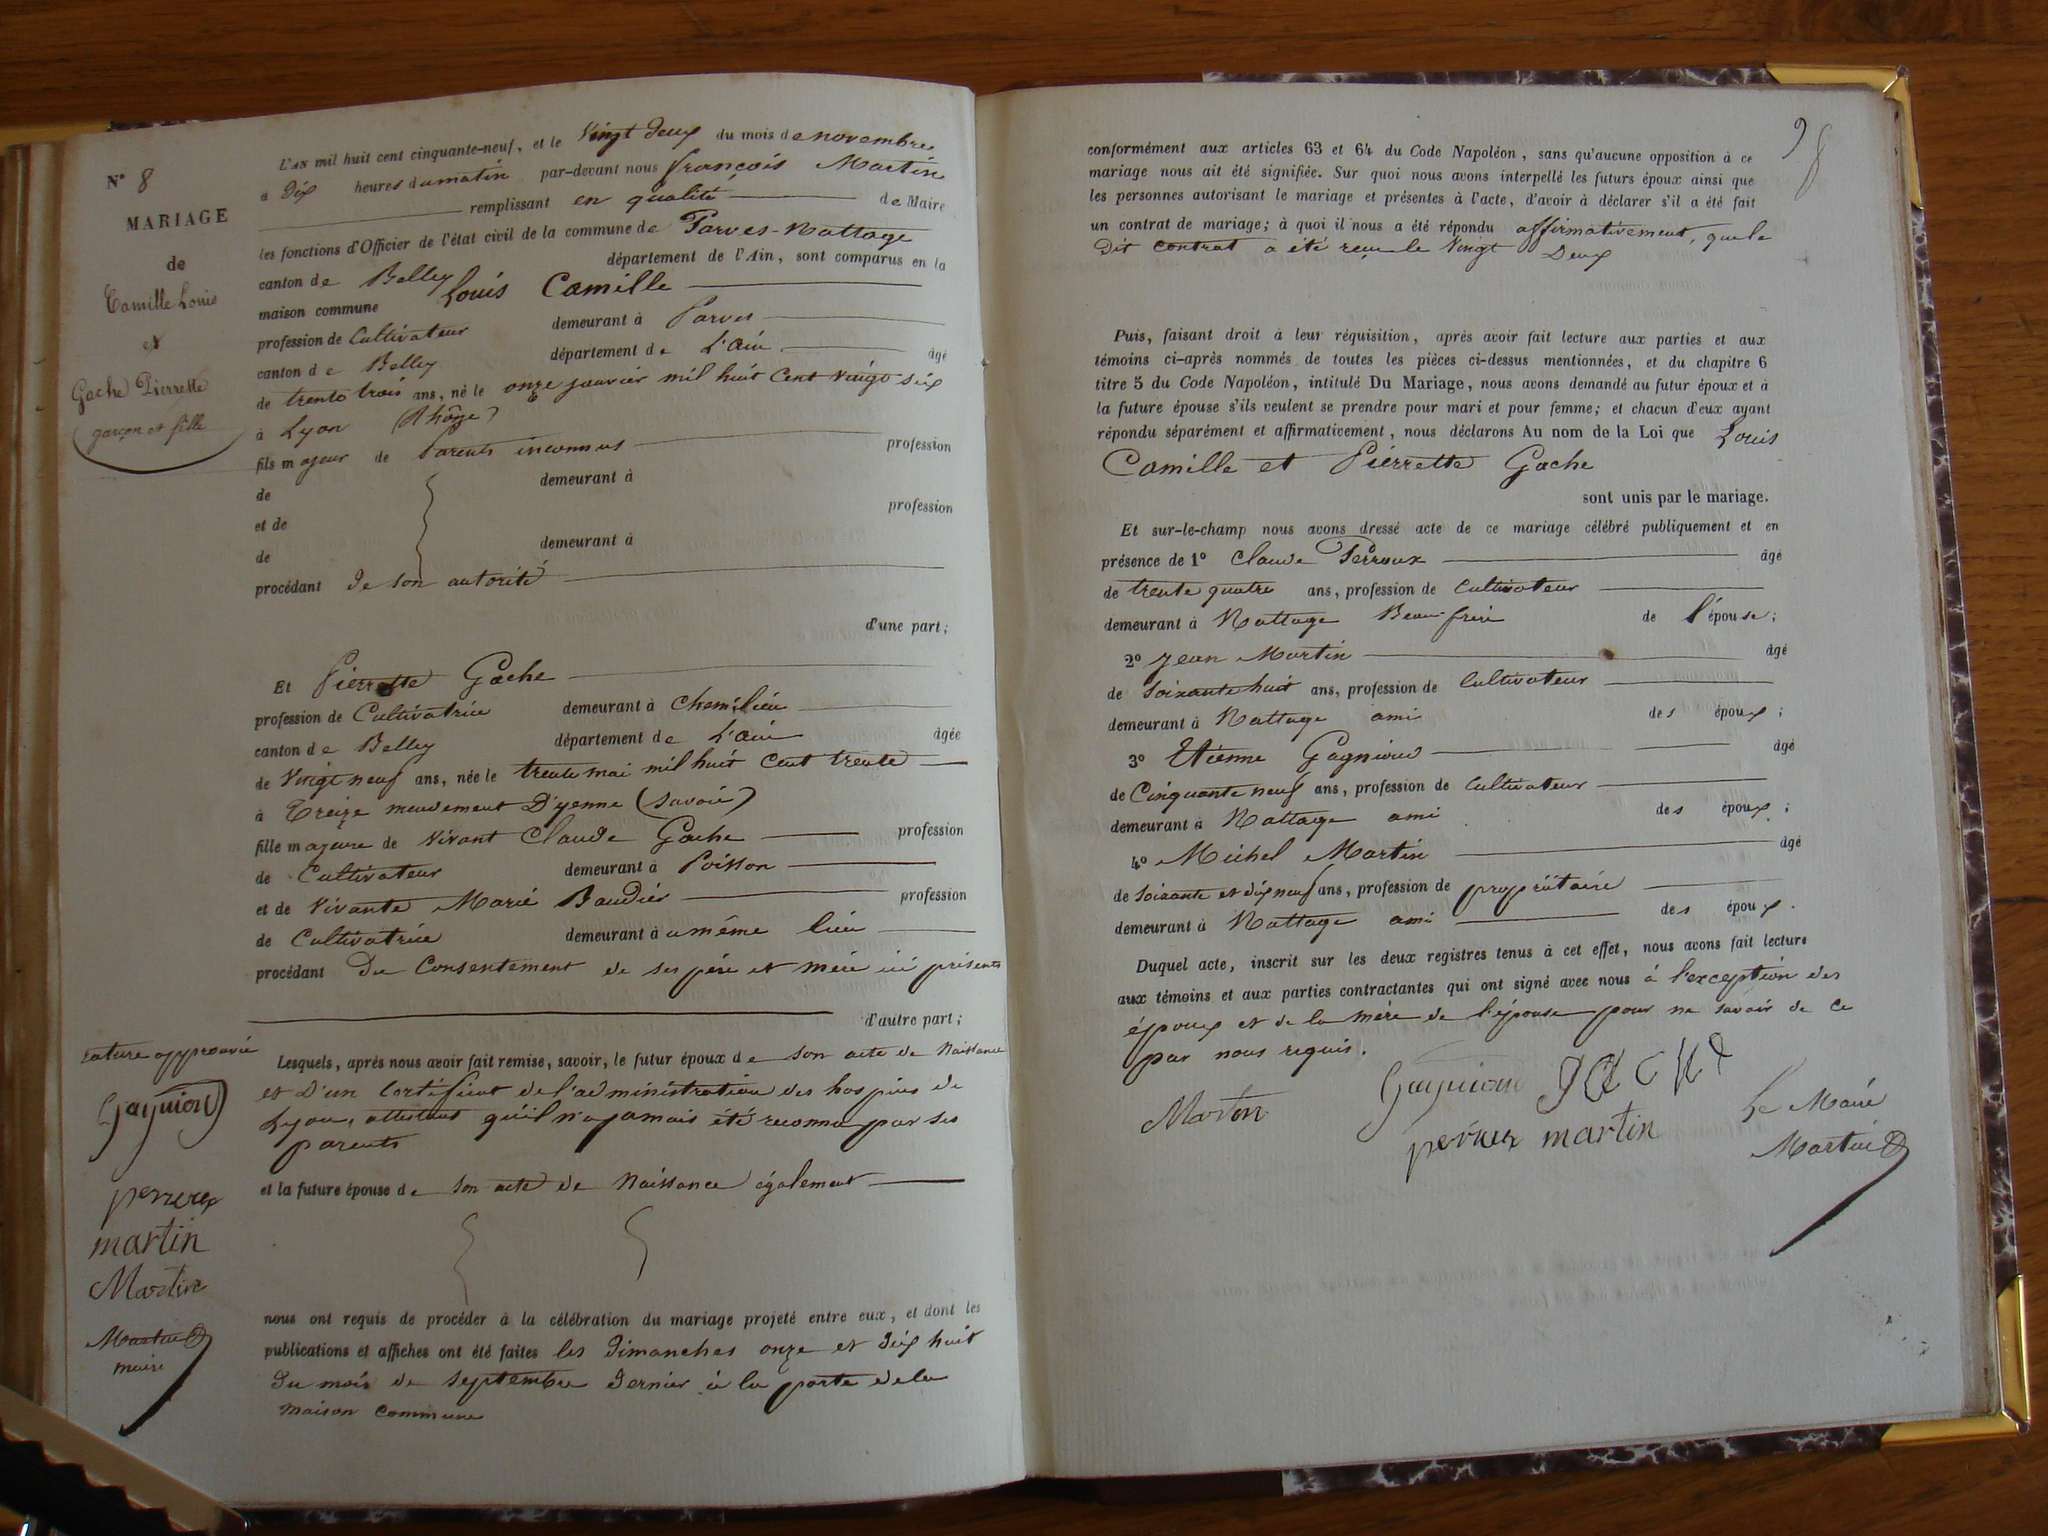 N° 8
MARIAGE
de
Camille Louis
et
Gache Pierrette
garçon et fille
L'AN mil huit cent cinquante-neuf, et le Vingt deux du mois de novembre
à dix heures du matin par-devant nous françois Martin
remplissant en qualité de Maire
les fonctions d'Officier de l'état civil de la commune de Parves-Nattage
canton de Belley département de l'Ain, sont comparus en la
maison commune Louis Camille
profession de Cultivateur demeurant à Parves
canton de Belley département de L'ain âgé
de trente trois ans, né le onze janvier mil huit Cent Vingt six
à Lyon (Rhône)
fils majeur de Parents inconnus profession
de demeurant à
et de profession
de demeurant à
procédant de son autorité
d'une part;
Et Pierrette Gache
profession de Cultivatrice demeurant à Chemilieu
canton de Belley département de L'ain âgée
de Vingt neuf ans, née le trente mai mil huit Cent trente
à Treize mendement D'yenne (Savoie)
fille majeure de Vivant Claude Gache profession
de Cultivateur demeurant à Poisson
et de Vivante Marie Baudier profession
de Cultivatrice demeurant à même lieu
procédant Du Consentement de ses père et mère ici présents
d'autre part;
rature approuvée
Gagnioud
perreux
martin
Martin
Martin
maire
Lesquels, après nous avoir fait remise, savoir, le futur époux de son acte de Naissance
et D'un Certificat de l'administration des hospices de
Lyon, attestant qu'il n'a jamais été reconnu par ses
parents
et la future épouse de son acte de Naissance également
nous ont requis de procéder à la célébration du mariage projeté entre eux, et dont les
publications et affiches ont été faites les Dimanches onze et dix huit
du mois de septembre dernier à la porte de la
maison commune
98
conformément aux articles 63 et 64 du Code Napoléon, sans qu'aucune opposition à ce
mariage nous ait été signifiée. Sur quoi nous avons interpellé les futurs époux ainsi que
les personnes autorisant le mariage et présentes à l'acte, d'avoir à déclarer s'il a été fait
un contrat de mariage; à quoi il nous a été répondu affirmativement, que le
dit contrat a été reçu le Vingt Deux
Puis, faisant droit à leur réquisition, après avoir fait lecture aux parties et aux
témoins ci-après nommés de toutes les pièces ci-dessus mentionnées, et du chapitre 6
titre 5 du Code Napoléon, intitulé Du Mariage, nous avons demandé au futur époux et à
la future épouse s'ils veulent se prendre pour mari et pour femme; et chacun d'eux ayant
répondu séparément et affirmativement, nous déclarons Au nom de la Loi que Louis
Camille et Pierrette Gache
sont unis par le mariage.
Et sur-le-champ nous avons dressé acte de ce mariage célébré publiquement et en
présence de 1° Claude Perroux âgé
de trente quatre ans, profession de Cultivateur
demeurant à Nattage Beau-frère de l'épouse;
2° Jean Martin âgé
de Soixante huit ans, profession de Cultivateur
demeurant à Nattage ami des époux;
3° Etienne Gagnioud âgé
de Cinquante neuf ans, profession de Cultivateur
demeurant à Nattage ami des époux;
4° Michel Martin âgé
de Soixante et dix neuf ans, profession de propriétaire
demeurant à Nattage ami des époux.
Duquel acte, inscrit sur les deux registres tenus à cet effet, nous avons fait lecture
aux témoins et aux parties contractantes qui ont signé avec nous à l'exception des
époux et de la mère de l'épouse pour ne savoir de ce
par nous requis.
Gagnioud GACHE
Martin Le Maire
perreux martin Martin